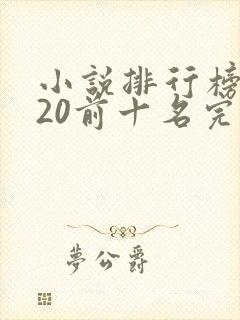 小說排行榜
20前十名完
夢公爵